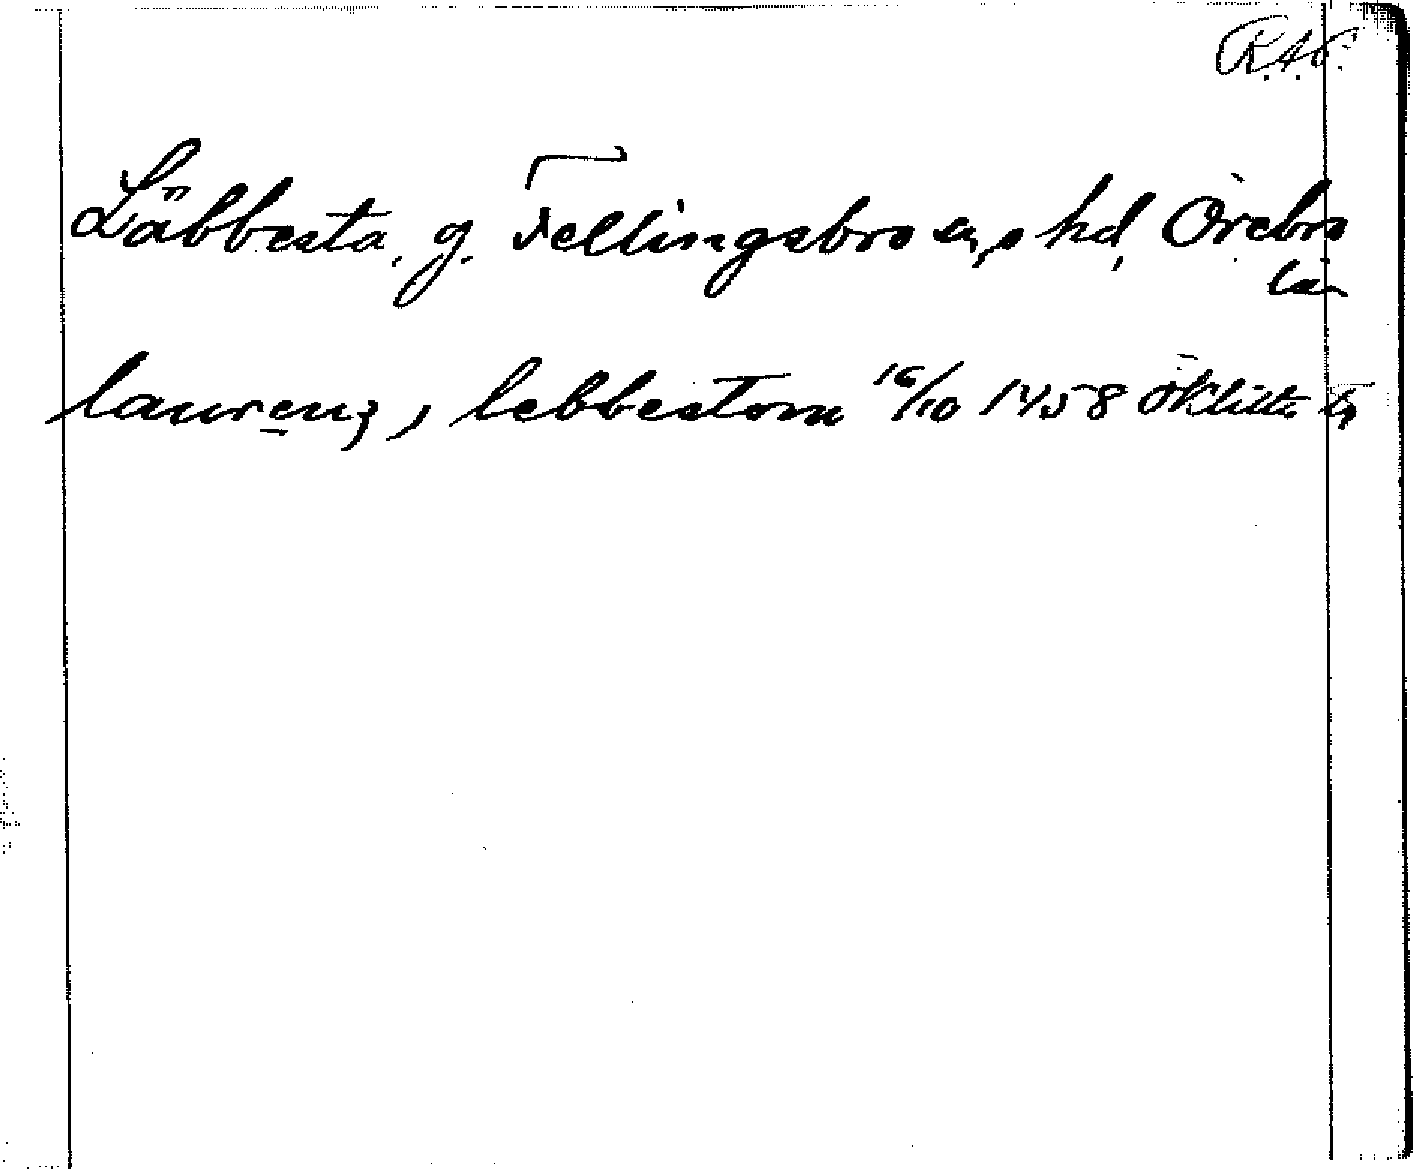 R.A.
Läbbesta, g. Fellingsbro sn, o hd, Örebro
län
laurenz, lebbestom 16/10 1458